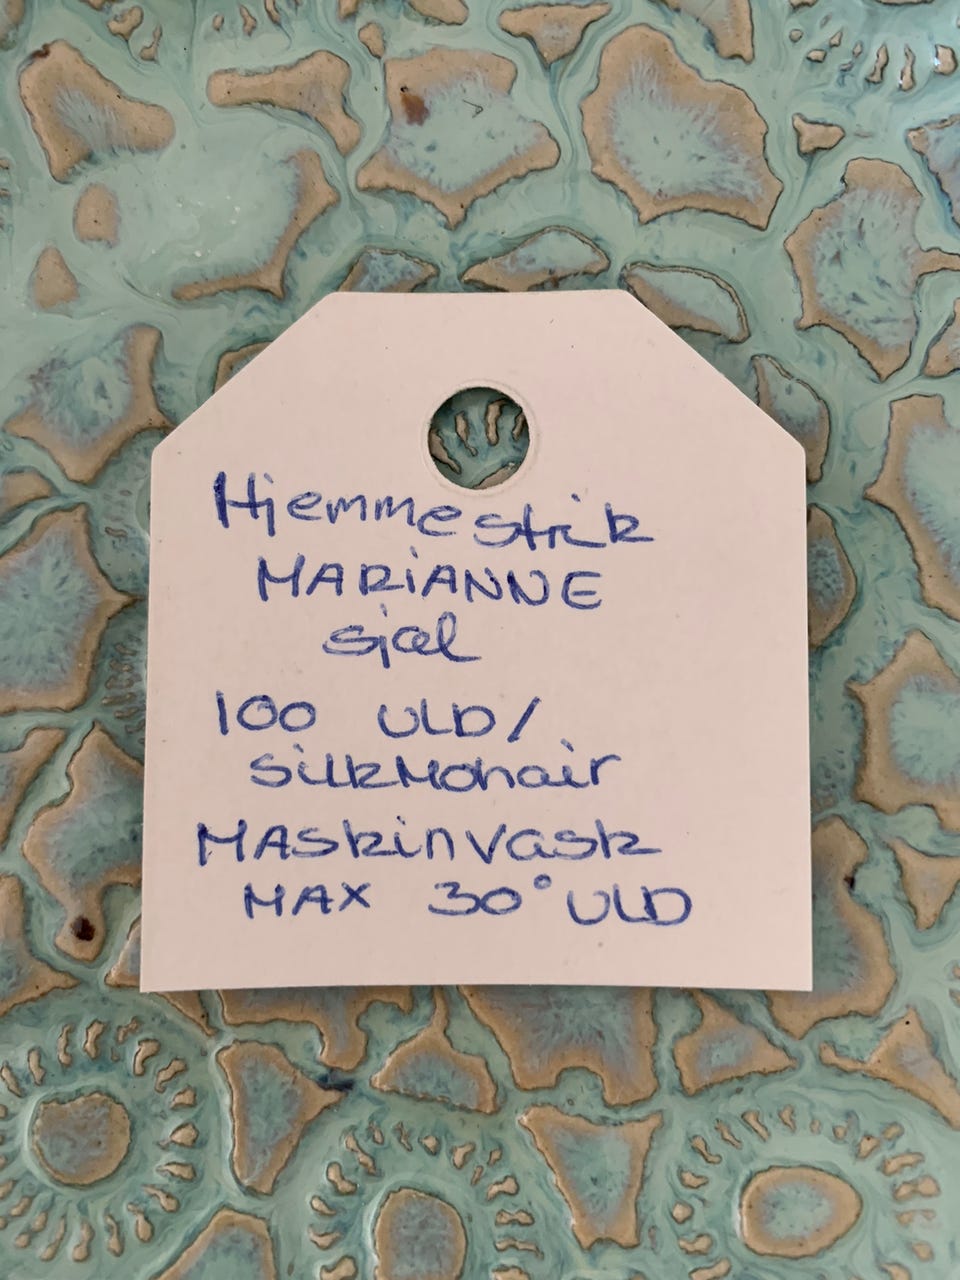 Hjemmestrik
MARiANNE
sjal
100 ULD/
SilkMohair
MAskinvask
MAX 30° ULD